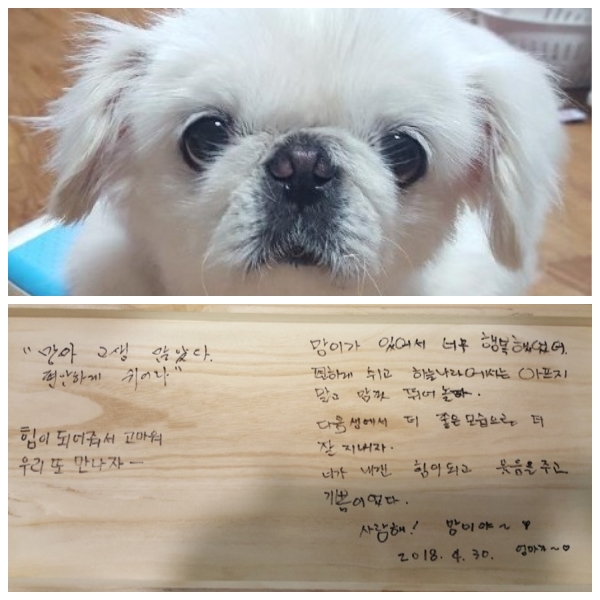 "만아 고생 많았다.
편안하게 쉬어라"
힘이 되어줘서 고마워
우리 또 만나자 —
망이가 있어서 너무 행복했었어.
편하게 쉬고 하늘나라에서는 아프지
말고 맘껏 뛰어 놀아.
다음생에서 더 좋은 모습으로 더
잘 지내자.
너가 내겐 힘이되고 웃음을 주고
기쁨이었다.
사랑해! 망이야~ ♥
2018. 4. 30. 엄마가~♡